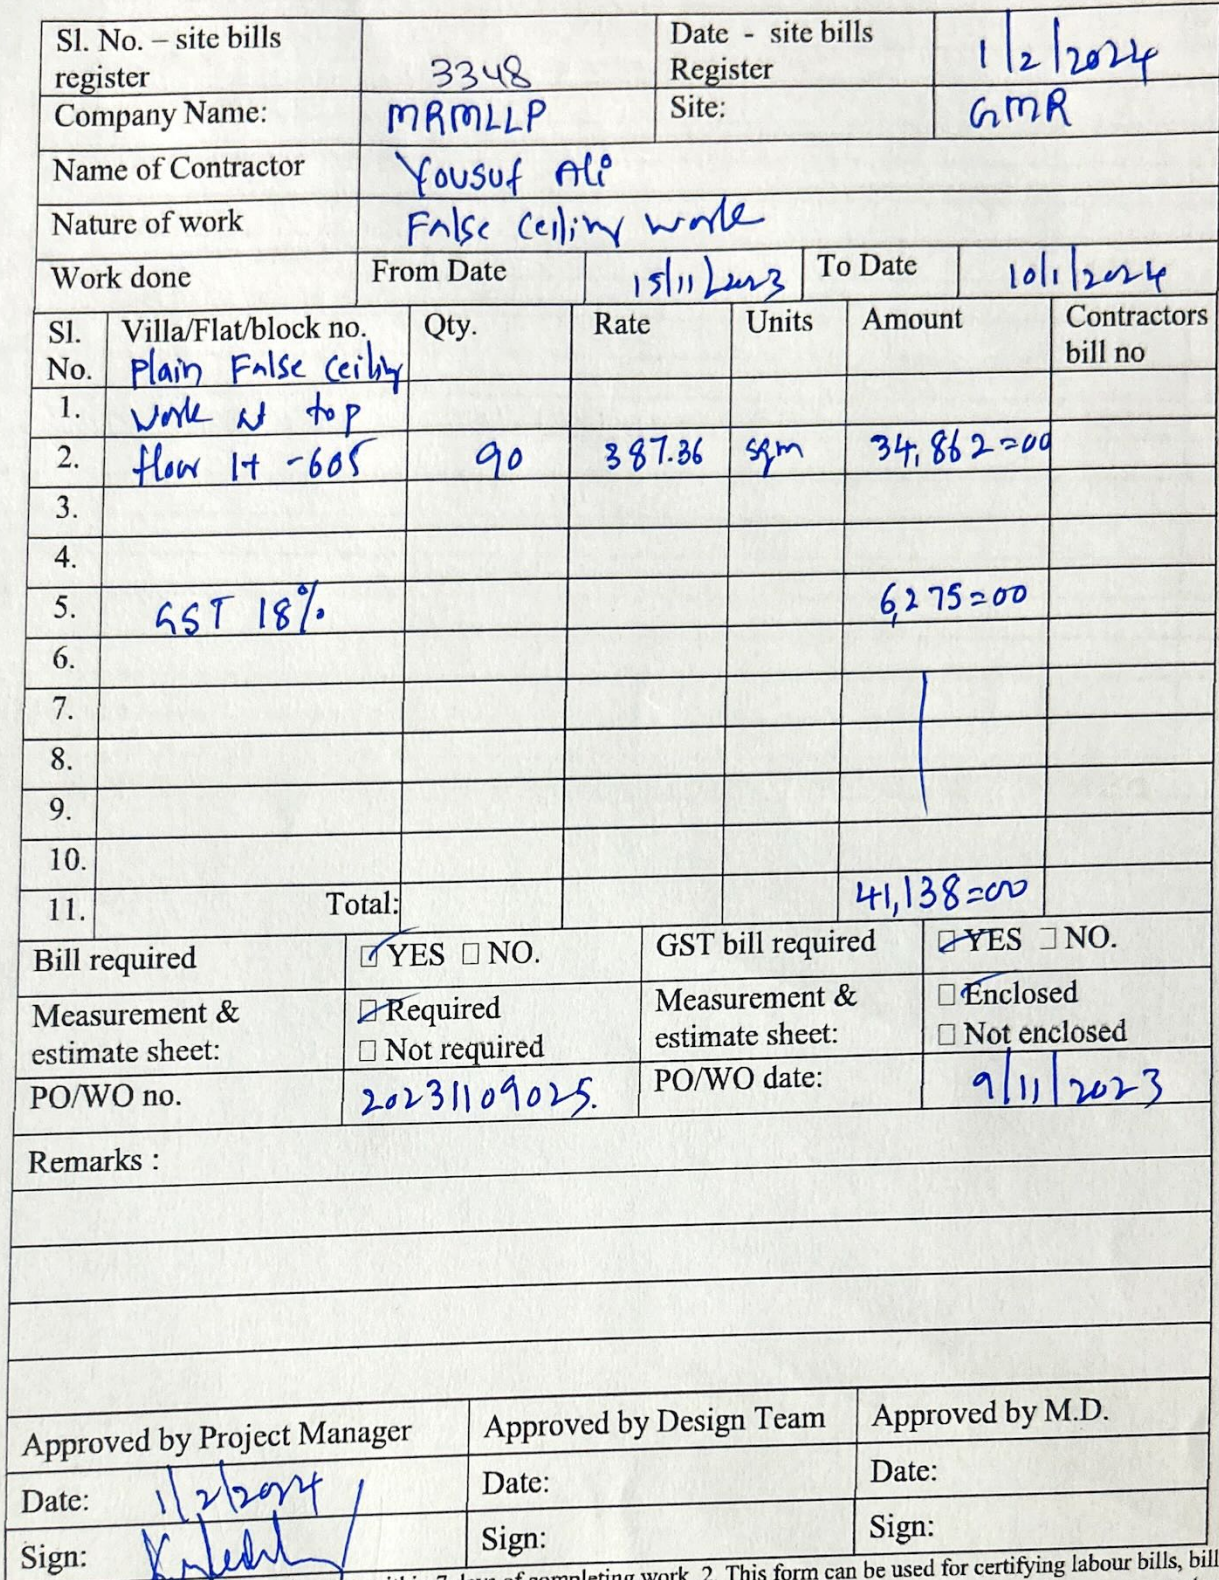 Sl. No. – site bills register 3348 Date - site bills Register 1/2/2024
Company Name: MRMLLP Site: GMR
Name of Contractor Yousuf Ali
Nature of work False Ceiling work
Work done From Date 15/11/2023 To Date 10/1/2024
Sl. No. Villa/Flat/block no. Qty. Rate Units Amount Contractors bill no
Plain False Ceiling
1. work at top
2. floor H-605 90 387.36 sqm 34,862=00
3.
4.
5. GST 18% 6,275=00
6.
7.
8.
9.
10.
11. Total: 41,138=00
Bill required YES NO. GST bill required YES NO.
Measurement & estimate sheet: Required Not required Measurement & estimate sheet: Enclosed Not enclosed
PO/WO no. 20231109025. PO/WO date: 9/11/2023
Remarks :
Approved by Project Manager Approved by Design Team Approved by M.D.
Date: 1/2/2024 Date: Date:
Sign: Sign: Sign:
of completing work. 2. This form can be used for certifying labour bills, bill